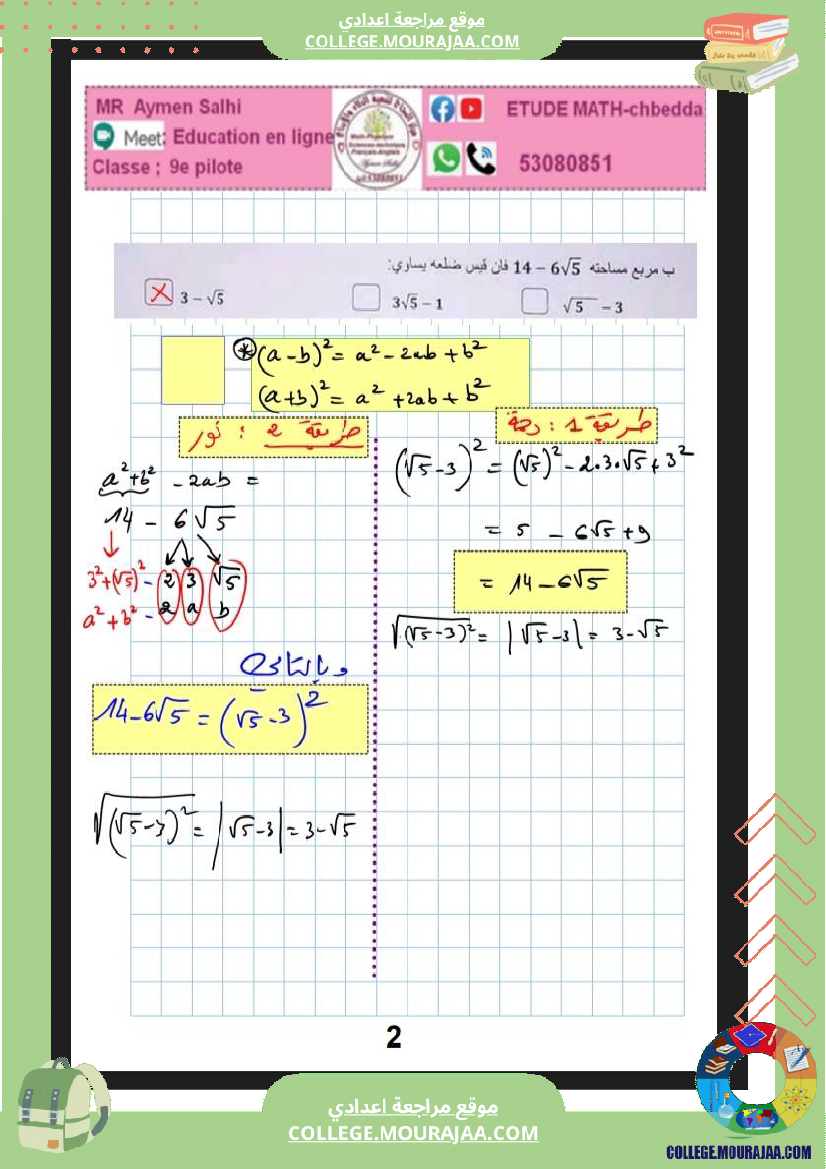 موقع مراجعة اعدادي
COLLEGE.MOURAJAA.COM
MR Aymen Salhi
Meet: Education en ligne
Classe ; 9e pilote
ETUDE MATH-chbedda
53080851
ب مربع مساحته 14 − 6√5 فان قيس ضلعه يساري:
☒ 3 − √5
☐ 3√5 − 1
☐ √5 − 3
⊛ (a − b)² = a² − 2ab + b²
(a+b)² = a² + 2ab + b²
طريقة 1 :
(√5 − 3)² = (√5)² − 2.3.√5 + 3²
= 5 − 6√5 + 9
= 14 − 6√5
√(√5−3)² = |√5−3| = 3−√5
طريقة 2 : نور
a²+b² − 2ab =
14 − 6√5
3²+(√5)² − 2 3 √5
a²+b² − 2 a b
و بالتالي
14−6√5 = (√5−3)²
√(√5−3)² = |√5−3| = 3−√5
2
موقع مراجعة اعدادي
COLLEGE.MOURAJAA.COM
COLLEGE.MOURAJAA.COM